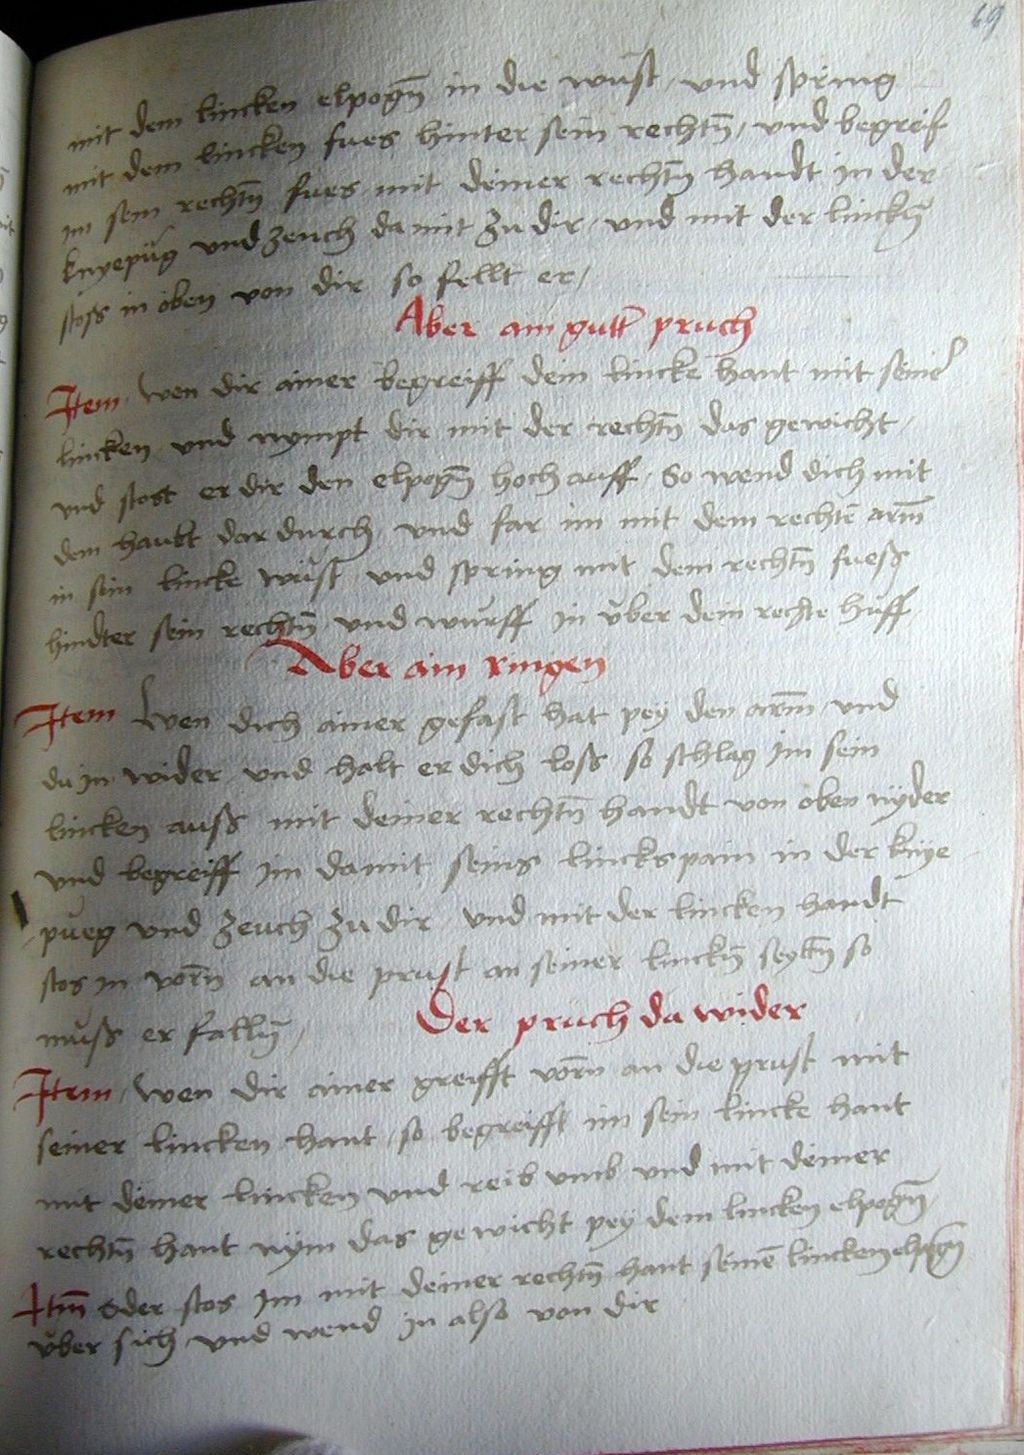 69
mit dem lincken elpogn̄ in die wüst / und spring
mit dem lincken fues hinter sein rechtn̄ / und begreif
im sein rechtn̄ fues mit deiner rechtn̄ handt in der
knyepüg und zeuch da mit zu dir / und mit der linckn̄
stoss in oben von dir so fellt er /
Aber ain gutt̄ pruch
Item wen dir ainer begreiff dein lincke hant mit seiner
lincken und nympt dir mit der rechtn̄ das gewicht /
und stost er dir den elpogn̄ hoch auff / So wend dich mit
dem haubt dar durch und far im mit dem rechtē arm̄
in sein lincke wüst und spring mit dem rechtn̄ fuess
hindter sein rechtn̄ und würff in über dein rechte huff
Aber ain ringen
Item wen dich ainer gefast hat pey den arm̄ und
du in wider und halt er dich loss so schlag im sein
lincken auss mit deiner rechtn̄ handt von oben nyder
und begreiff im damit seins linckspain in der knye
püeg und zeuch zu dir und mit der lincken handt
stos in vorn̄ an die prust an seiner linckn̄ seytn̄ so
muss er falln̄ / Der pruch da wider
Item wen dir ainer greifft vorn̄ an die prust mit
seiner lincken hant / so begreifft im sein lincke hant
mit deiner lincken und reib umb und mit deiner
rechtn̄ hant nym das gewicht pey dem lincken elpogn̄
Itm̄ oder stos im mit deiner rechtn̄ hant seinē lincken elpogn̄
über sich und wend in also von dir